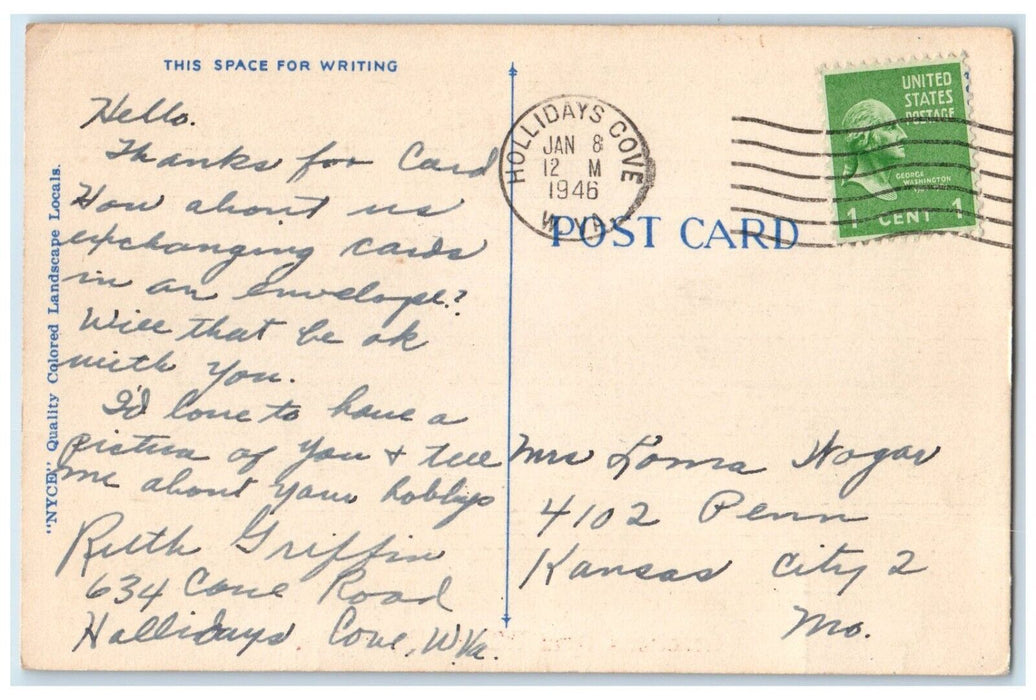 THIS SPACE FOR WRITING
Hello.
Thanks for Card
How about us
exchanging cards
in an envelope?
Will that be ok
with you.
I'd love to have a
picture of you & tell
me about your hobbys
Ruth Griffin
634 Cove Road
Hollidays Cove, W.Va.
"NYCE" Quality Colored Landscape Locals.
HOLLIDAYS COVE
JAN 8
12 M
1946
W. VA.
UNITED
STATES
POSTAGE
GEORGE
WASHINGTON
1 CENT 1
POST CARD
Mrs Loma Hogar
4102 Penn
Kansas City 2
Mo.